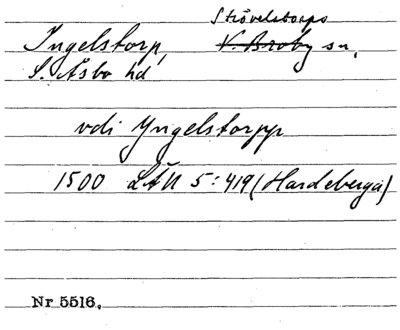 Strövelstorps
Ingelstorp, V. Broby sn,
S. Åsbo hd
vdi Yngelstorpp
1500 LÄU 5:419 (Hardeberga)
Nr 5516.